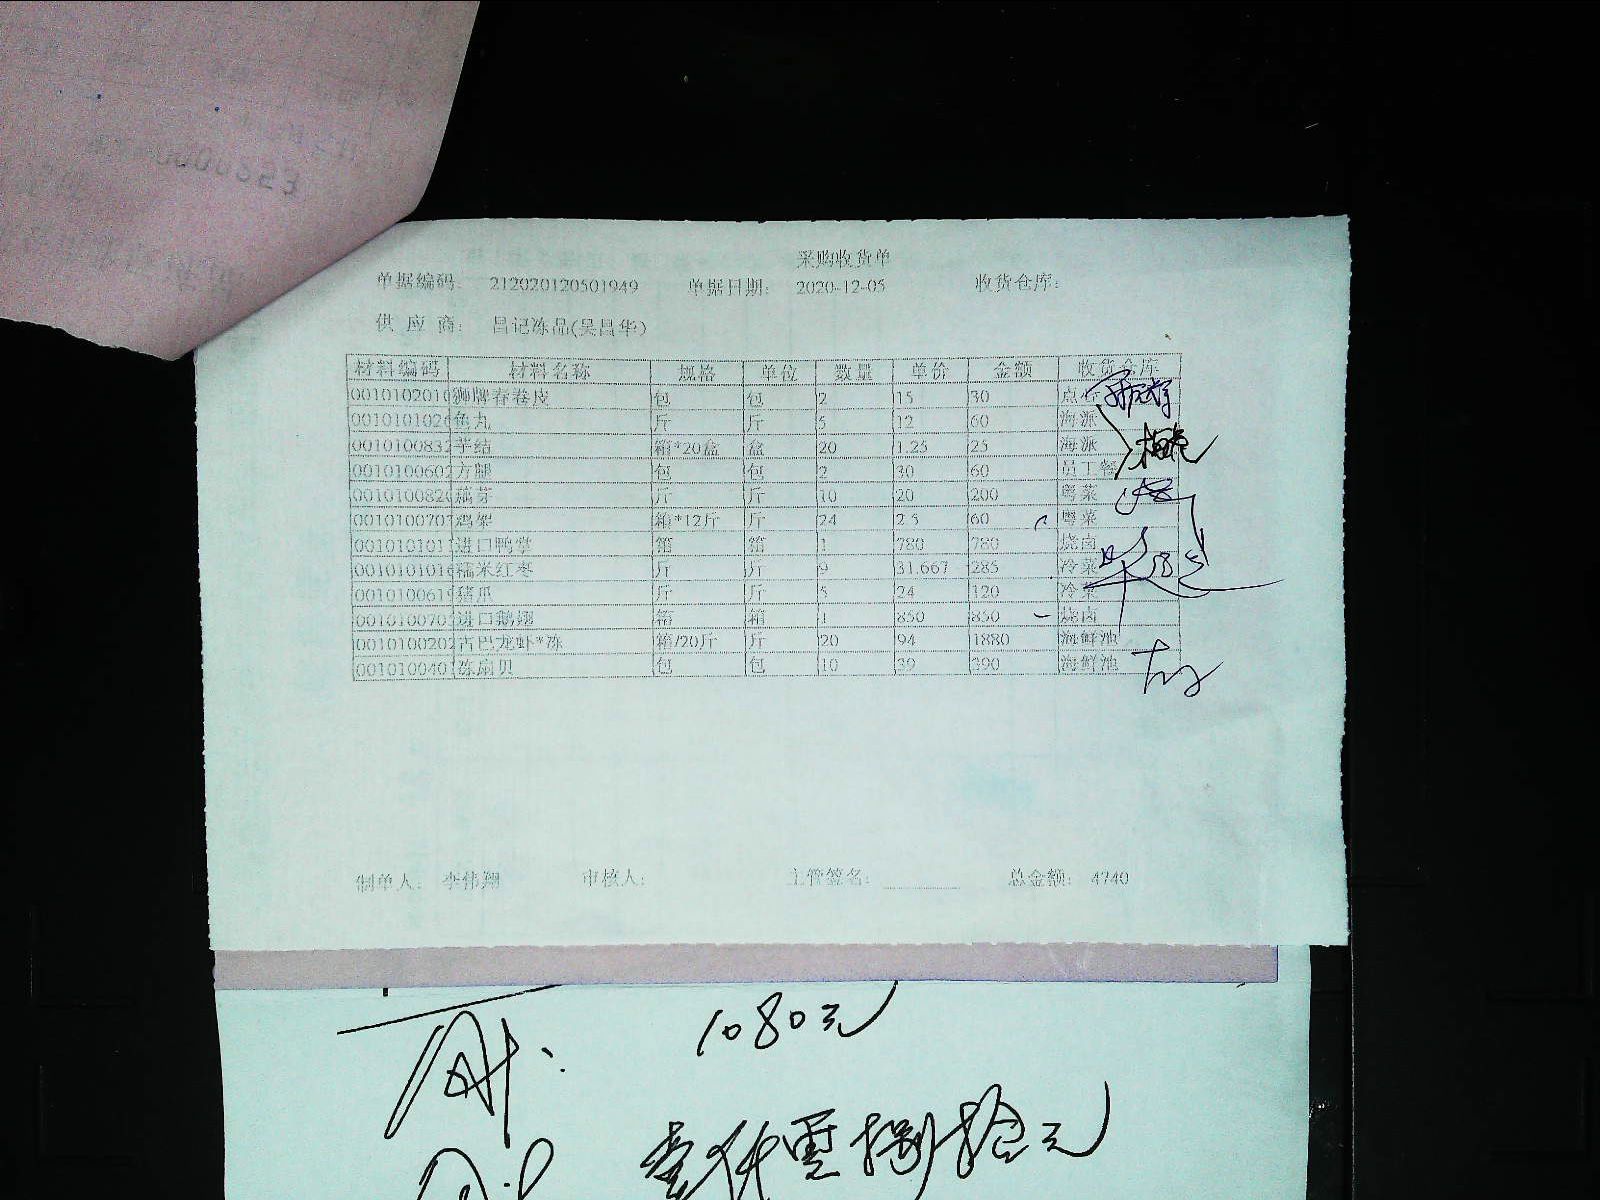 采购收货单
单据编码: 212020120501949 单据日期: 2020-12-05 收货仓库:
供 应 商: 昌记冻品(吴昌华)
材料编码 材料名称 规格 单位 数量 单价 金额 收货仓库
0010102010 狮牌春卷皮 包 包 2 15 30 点
001010102 鱼丸 斤 斤 5 12 60 海派
001010083 芋结 箱*20盒 盒 20 1.25 25 海派
001010060 方腿 包 包 2 30 60 员工餐
001010082 藕芽 斤 斤 10 20 200 粤菜
001010070 鸡架 箱*12斤 斤 24 2.5 60 粤菜
001010101 进口鸭掌 箱 箱 1 780 780 烧卤
001010101 糯米红枣 斤 斤 9 31.667 285 冷菜
001010061 斤 斤 5 24 120 冷菜
001010070 进口鹅翅 箱 箱 1 850 850 烧卤
001010020 古巴龙虾*冻 箱/20斤 斤 20 94 1880 海鲜池
001010040 冻扇贝 包 包 10 39 390 海鲜池
制单人: 李伟翔 审核人: 主管签名: 总金额: 4740
1080元
壹仟零捌拾元